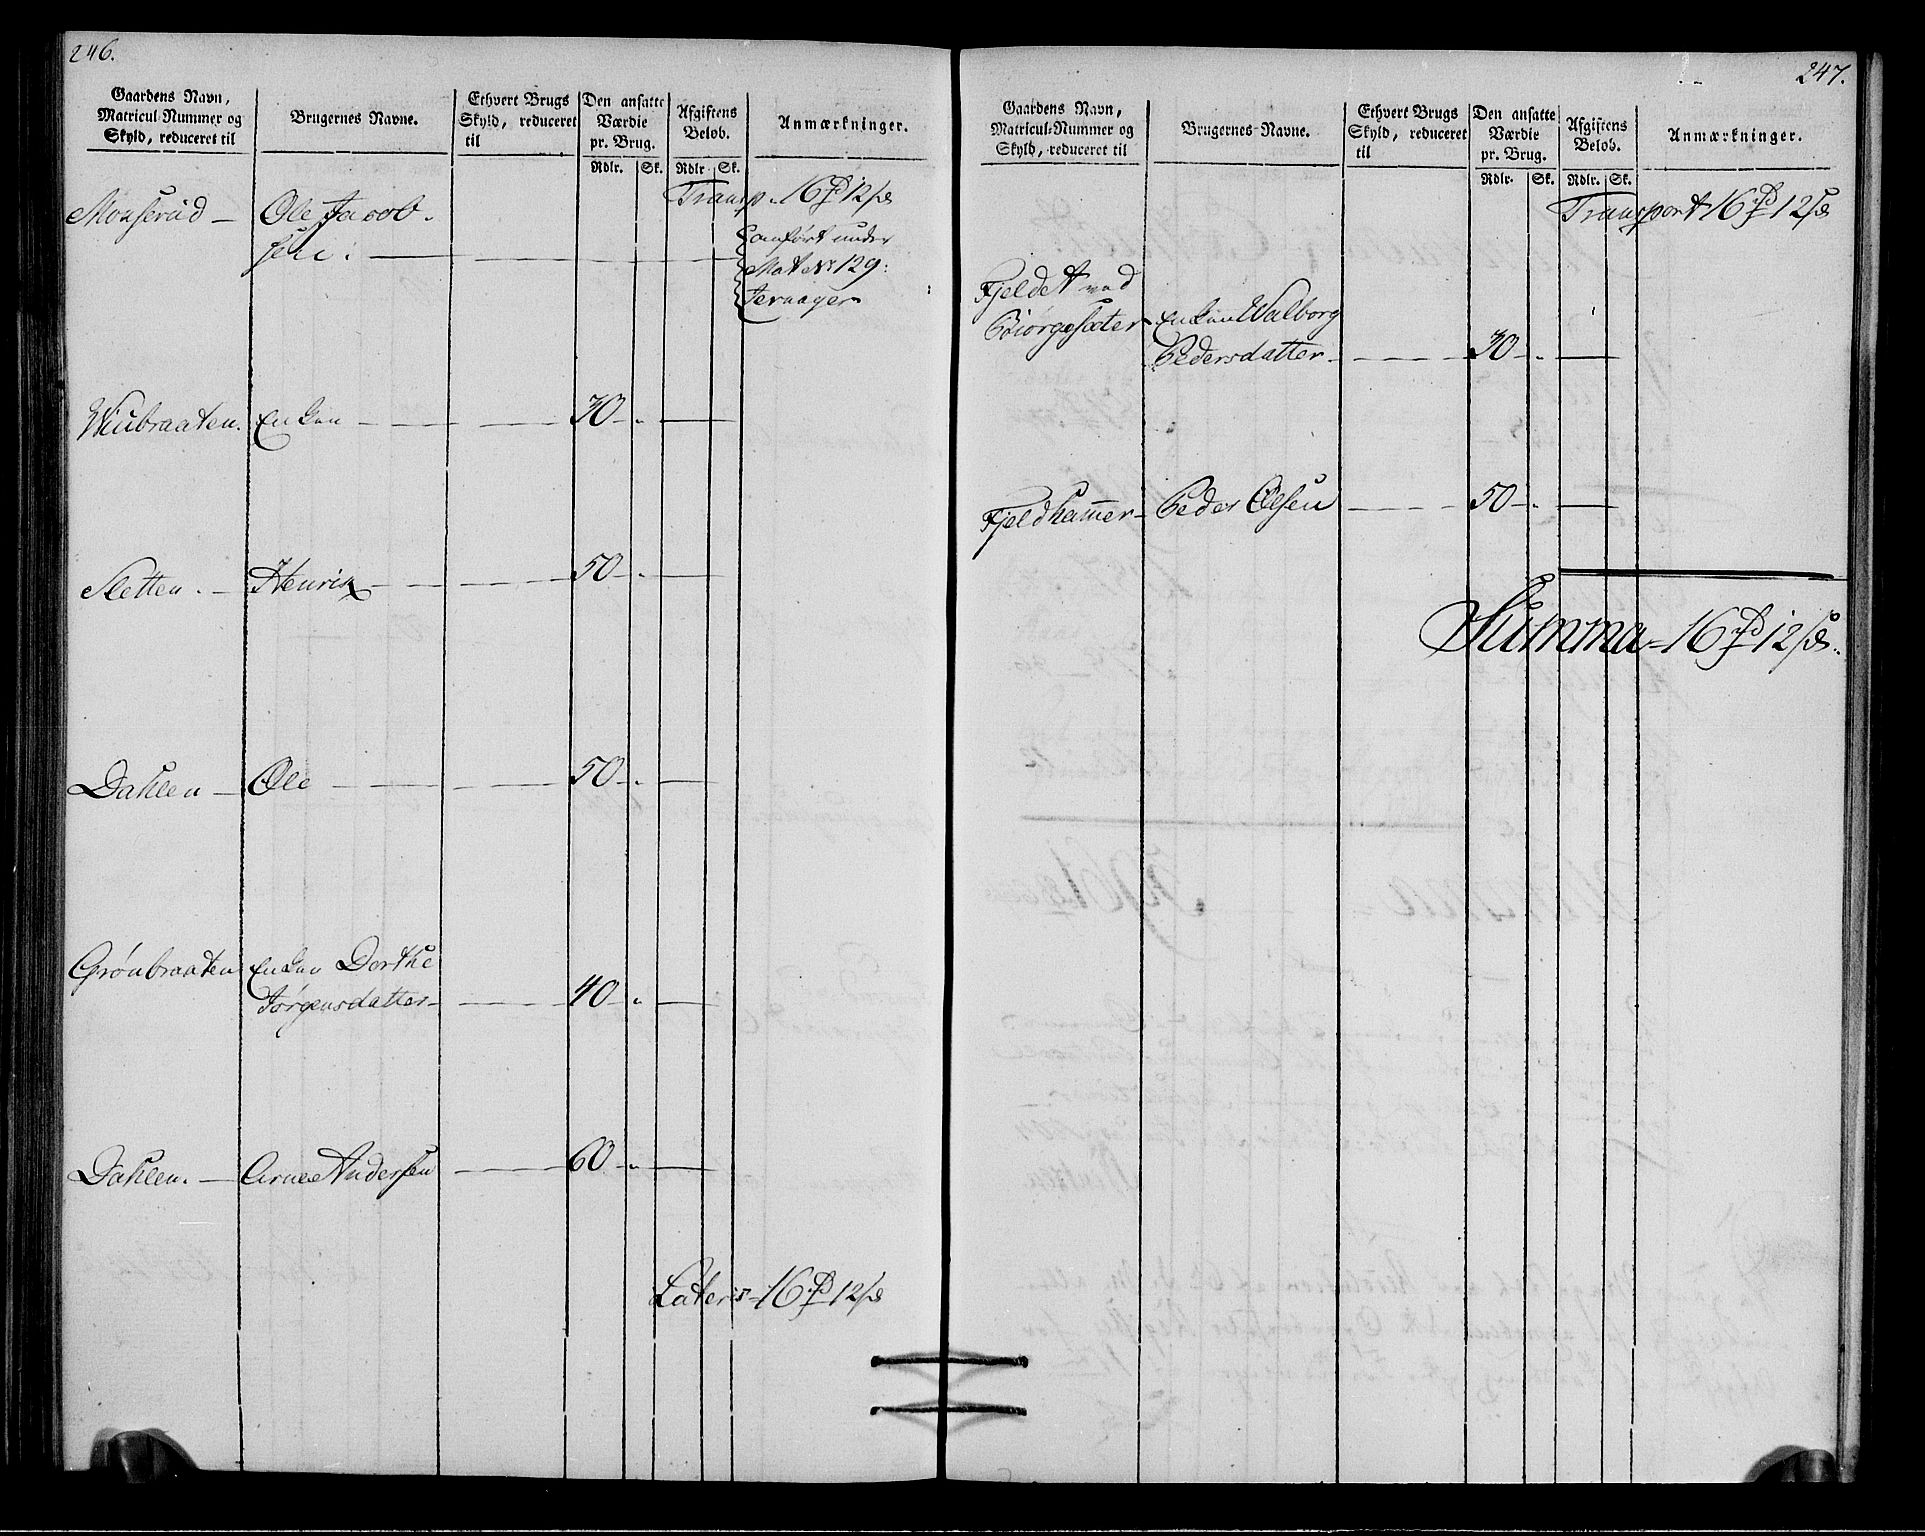 246.
Gaardens Navn,
Matricul-Nummer og
Skyld, reduceret til
Brugernes Navne.
Ethvert Brugs
Skyld, reduceret
til
Den ansatte
Værdie
pr. Brug.
Rdlr. Sk.
Afgiftens
Beløb.
Rdlr. Sk.
Anmærkninger.
Transp. 16 12
Ole Jacob-
sen.
anført under
Mat. No 129:
Jernager
Wiubraaten. Enken 30
Sletten. Henrik 50
Dahlen Ole 50
Grønbraaten Enken Dorthe
Jørgensdatter 40
Dahlen. Arne Andersen 60
Lateris 16 12
247.
Gaardens Navn,
Matricul-Nummer og
Skyld, reduceret til
Brugernes Navne.
Ethvert Brugs
Skyld, reduceret
til
Den ansatte
Værdie
pr. Brug.
Rdlr. Sk.
Afgiftens
Beløb.
Rdlr. Sk.
Anmærkninger.
Transport 16 12
Fjeldet ved
Biørgesæter Enken Walborg
Pedersdatter 30
Fjeldhammer Peder Olsen 50
Summa 16 12